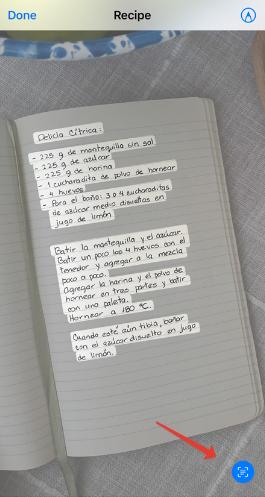 Done
Recipe
Delicia Cítrica:
- 225 g de mantequilla sin sal
- 225 g de azúcar
- 225 g de harina
- 1 cucharadita de polvo de hornear
- 4 huevos
- Para el baño: 3 o 4 cucharaditas
de azúcar medio disueltas en
jugo de limón
Batir la mantequilla y el azúcar.
Batir un poco los 4 huevos con el
tenedor y agregar a la mezcla
poco a poco.
Agregar la harina y el polvo de
hornear en tres partes y batir
con una paleta.
Hornear a 180 °C.
Cuando esté aún tibia, bañar
con el azúcar disuelto en jugo
de limón.